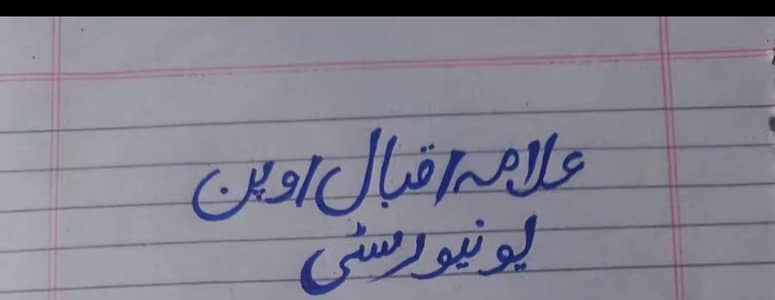 علامہ اقبال اوپن
یونیورسٹی